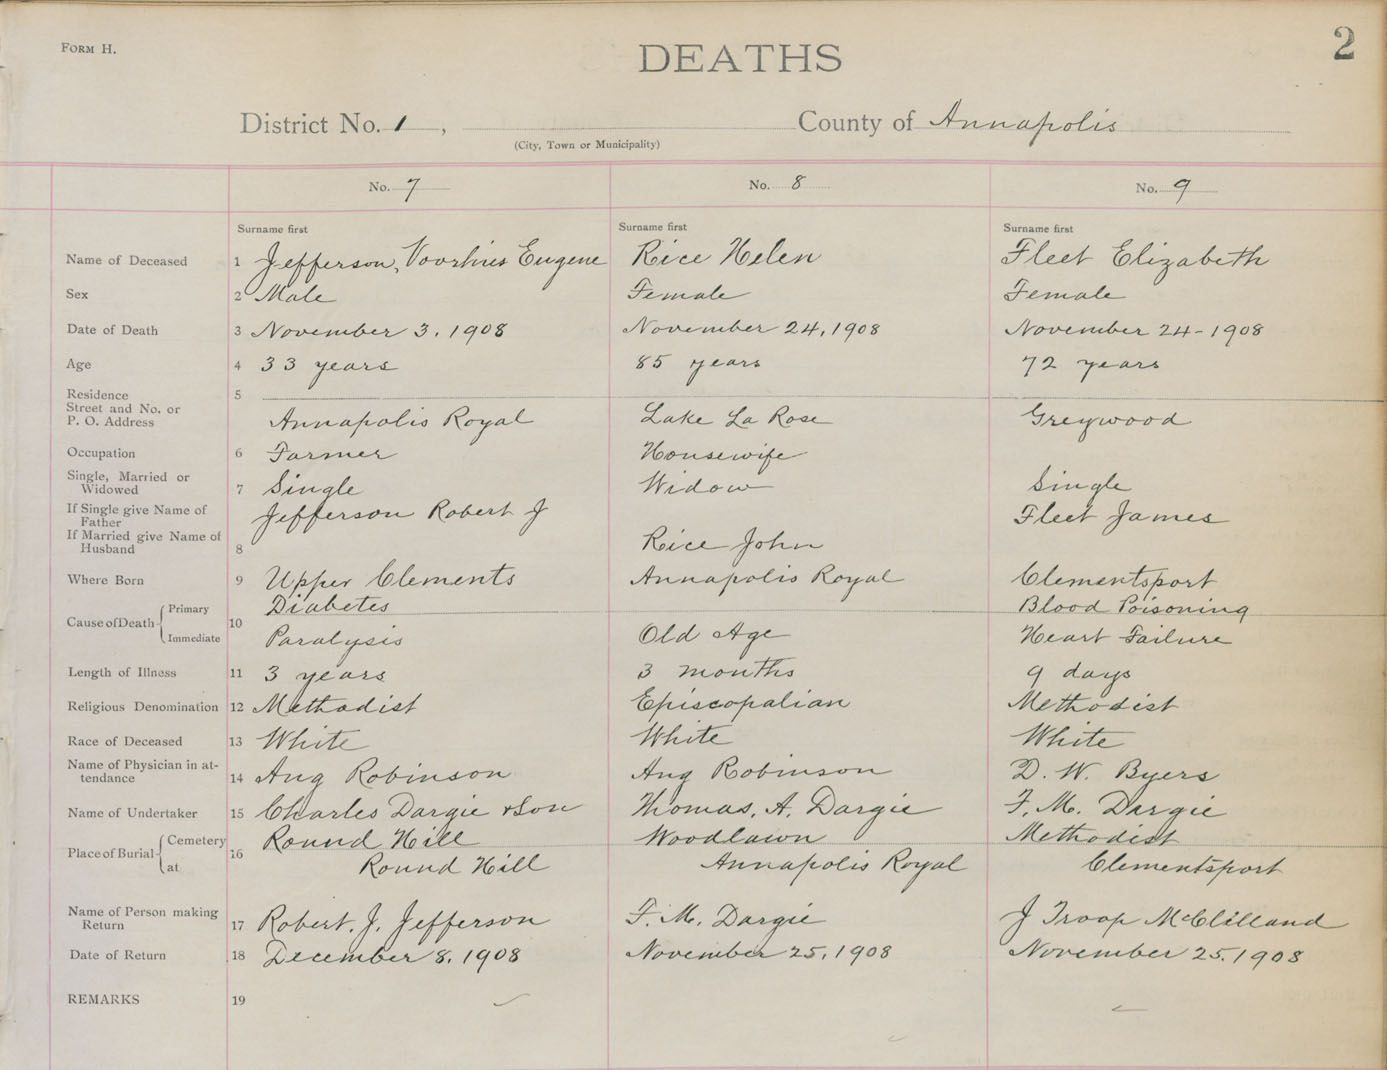 FORM H.
2
DEATHS
District No. 1 , County of Annapolis
(City, Town or Municipality)
No. 7 No. 8 No. 9
Surname first Surname first Surname first
Name of Deceased 1 Jefferson, Voorhies Eugene Rice Helen Fleet Elizabeth
Sex 2 Male Female Female
Date of Death 3 November 3, 1908 November 24, 1908 November 24-1908
Age 4 33 years 85 years 72 years
Residence 5
Street and No. or
P. O. Address Annapolis Royal Lake La Rose Greywood
Occupation 6 Farmer Housewife
Single, Married or
Widowed 7 Single Widow Single
If Single give Name of
Father Jefferson Robert J Fleet James
If Married give Name of
Husband 8 Rice John
Where Born 9 Upper Clements Annapolis Royal Clementsport
Cause of Death 10 Primary Diabetes Blood Poisoning
Immediate Paralysis Old Age Heart Failure
Length of Illness 11 3 years 3 months 9 days
Religious Denomination 12 Methodist Episcopalian Methodist
Race of Deceased 13 White White White
Name of Physician in at-
tendance 14 Aug Robinson Aug Robinson D. W. Byers
Name of Undertaker 15 Charles Dargie & Son Thomas, A. Dargie F. M. Dargie
Place of Burial 16 Cemetery Round Hill Woodlawn Methodist
at Round Hill Annapolis Royal Clementsport
Name of Person making
Return 17 Robert. J. Jefferson F. M. Dargie J Troop McClelland
Date of Return 18 December 8, 1908 November 25, 1908 November 25, 1908
REMARKS 19